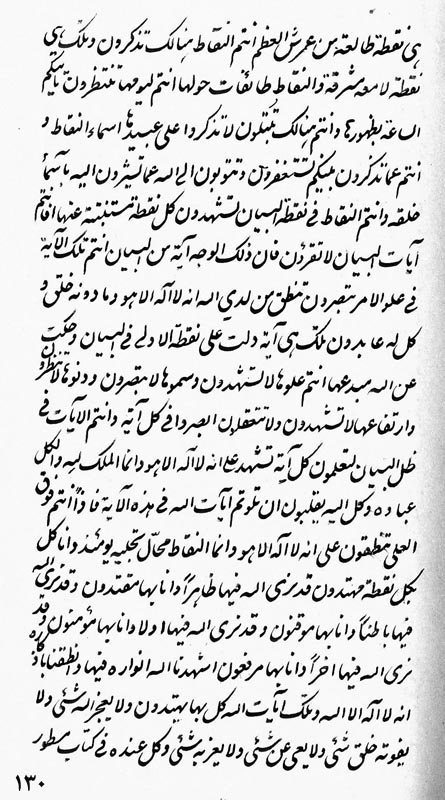 هی نقطة طالعة من عرش العظم انتم النقاط هنالک تذکرون و تلک هی
نقطة لامعة مشرقة و النقاط طائفات حولها انتم لیومها تنتظرون یأتیکم
الساعة بظهورها و انتم هنالک تبتلون لا تذکروا علی عبیدها اسماء النقاط و
انتم عما تذکرون بینکم تستغفرون و تتوبون الی الله عما تشیرون الیه باسماء
خلقه و انتم النقاط فی نقطة البیان لتشهدون کل نقطة مستنبئة عنها افانتم
آیات البیان لا تقرؤن فان ذلک الوجه آیة من البیان انتم تلک الآیة
فی علو الامر تبصرون تنطق من لدی الله انه لا اله الا هو و ما دونه خلق و
کل له عابدون تلک هی آیة دلت علی نقطة الاولی فی البیان و حکیت
عن الله مبدعها انتم علوها لا تشهدون و سموها لا تبصرون و دنوها لا تنظرون
و ارتفاعها لا تشهدون و لا تتعقلون ابصروا فی کل آیة و انتم الآیات فی
ظل البیان لتعلمون کل آیة تشهد علی انه لا اله الا هو و انما الملک لله و الکل
عباده و کل الیه یقلبون ان تلوتم آیات الله فی هذه الآیة فاذاً انتم فوق
العلی تنطقون علی انه لا اله الا هو و انما النقاط محال تجلیه یومئذ و انا کل
بکل نقطة مهتدون قد نری الله فیها ظاهراً و انا بها مقتدون و قد نری الله
فیها باطناً و انا بها موقنون و قد نری الله فیها اولا و انا بها مؤمنون و قد
نری الله فیها آخراً و انا بها مرفعون اشهدنا الله انواره فیها و انطقنا باذکاره
انه لا اله الا الله و تلک آیات الله کل بها یهتدون و لا یعجز الله شئی و لا
یفوته خلق شئی و لا یعی عن شئی و لا یعزبه شئی و کل عنده فی کتاب مسطور
۱۳۰